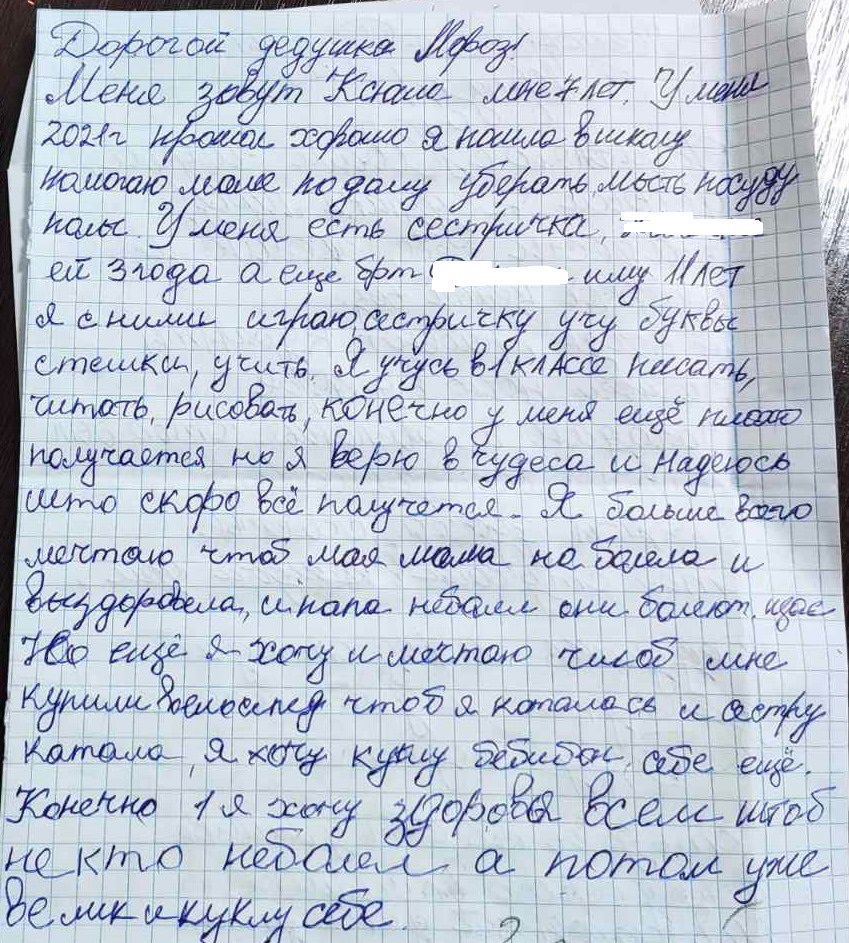 Дорогой дедушка Мороз!
Меня зовут Ксюша мне 7 лет. У меня
2021г прошол хорошо я пошла в школу
помогаю маме по дому уберать, мыть посуду
полы. У меня есть сестричка,
ей 3 года а еще брт иму 11 лет
я с ними играю, сестричку учу буквы
стешки, учить. Я учусь в 1 классе писать,
читать, рисовать, конечно у меня ещё плохо
получается но я верю в чудеса и надеюсь
што скоро всё получется. Я больше всего
мечтаю чтоб мая мама на болела и
выздоровела, и папа неболел они болеют щас
Но ещё я хочу и мечтаю чтоб мне
купили велосипед чтоб я каталась и сестру
катала, я хочу куклу бебибон себе ещё.
Конечно 1 я хочу здоровья всем штоб
не кто неболел а потом уже
велик и куклу себе.